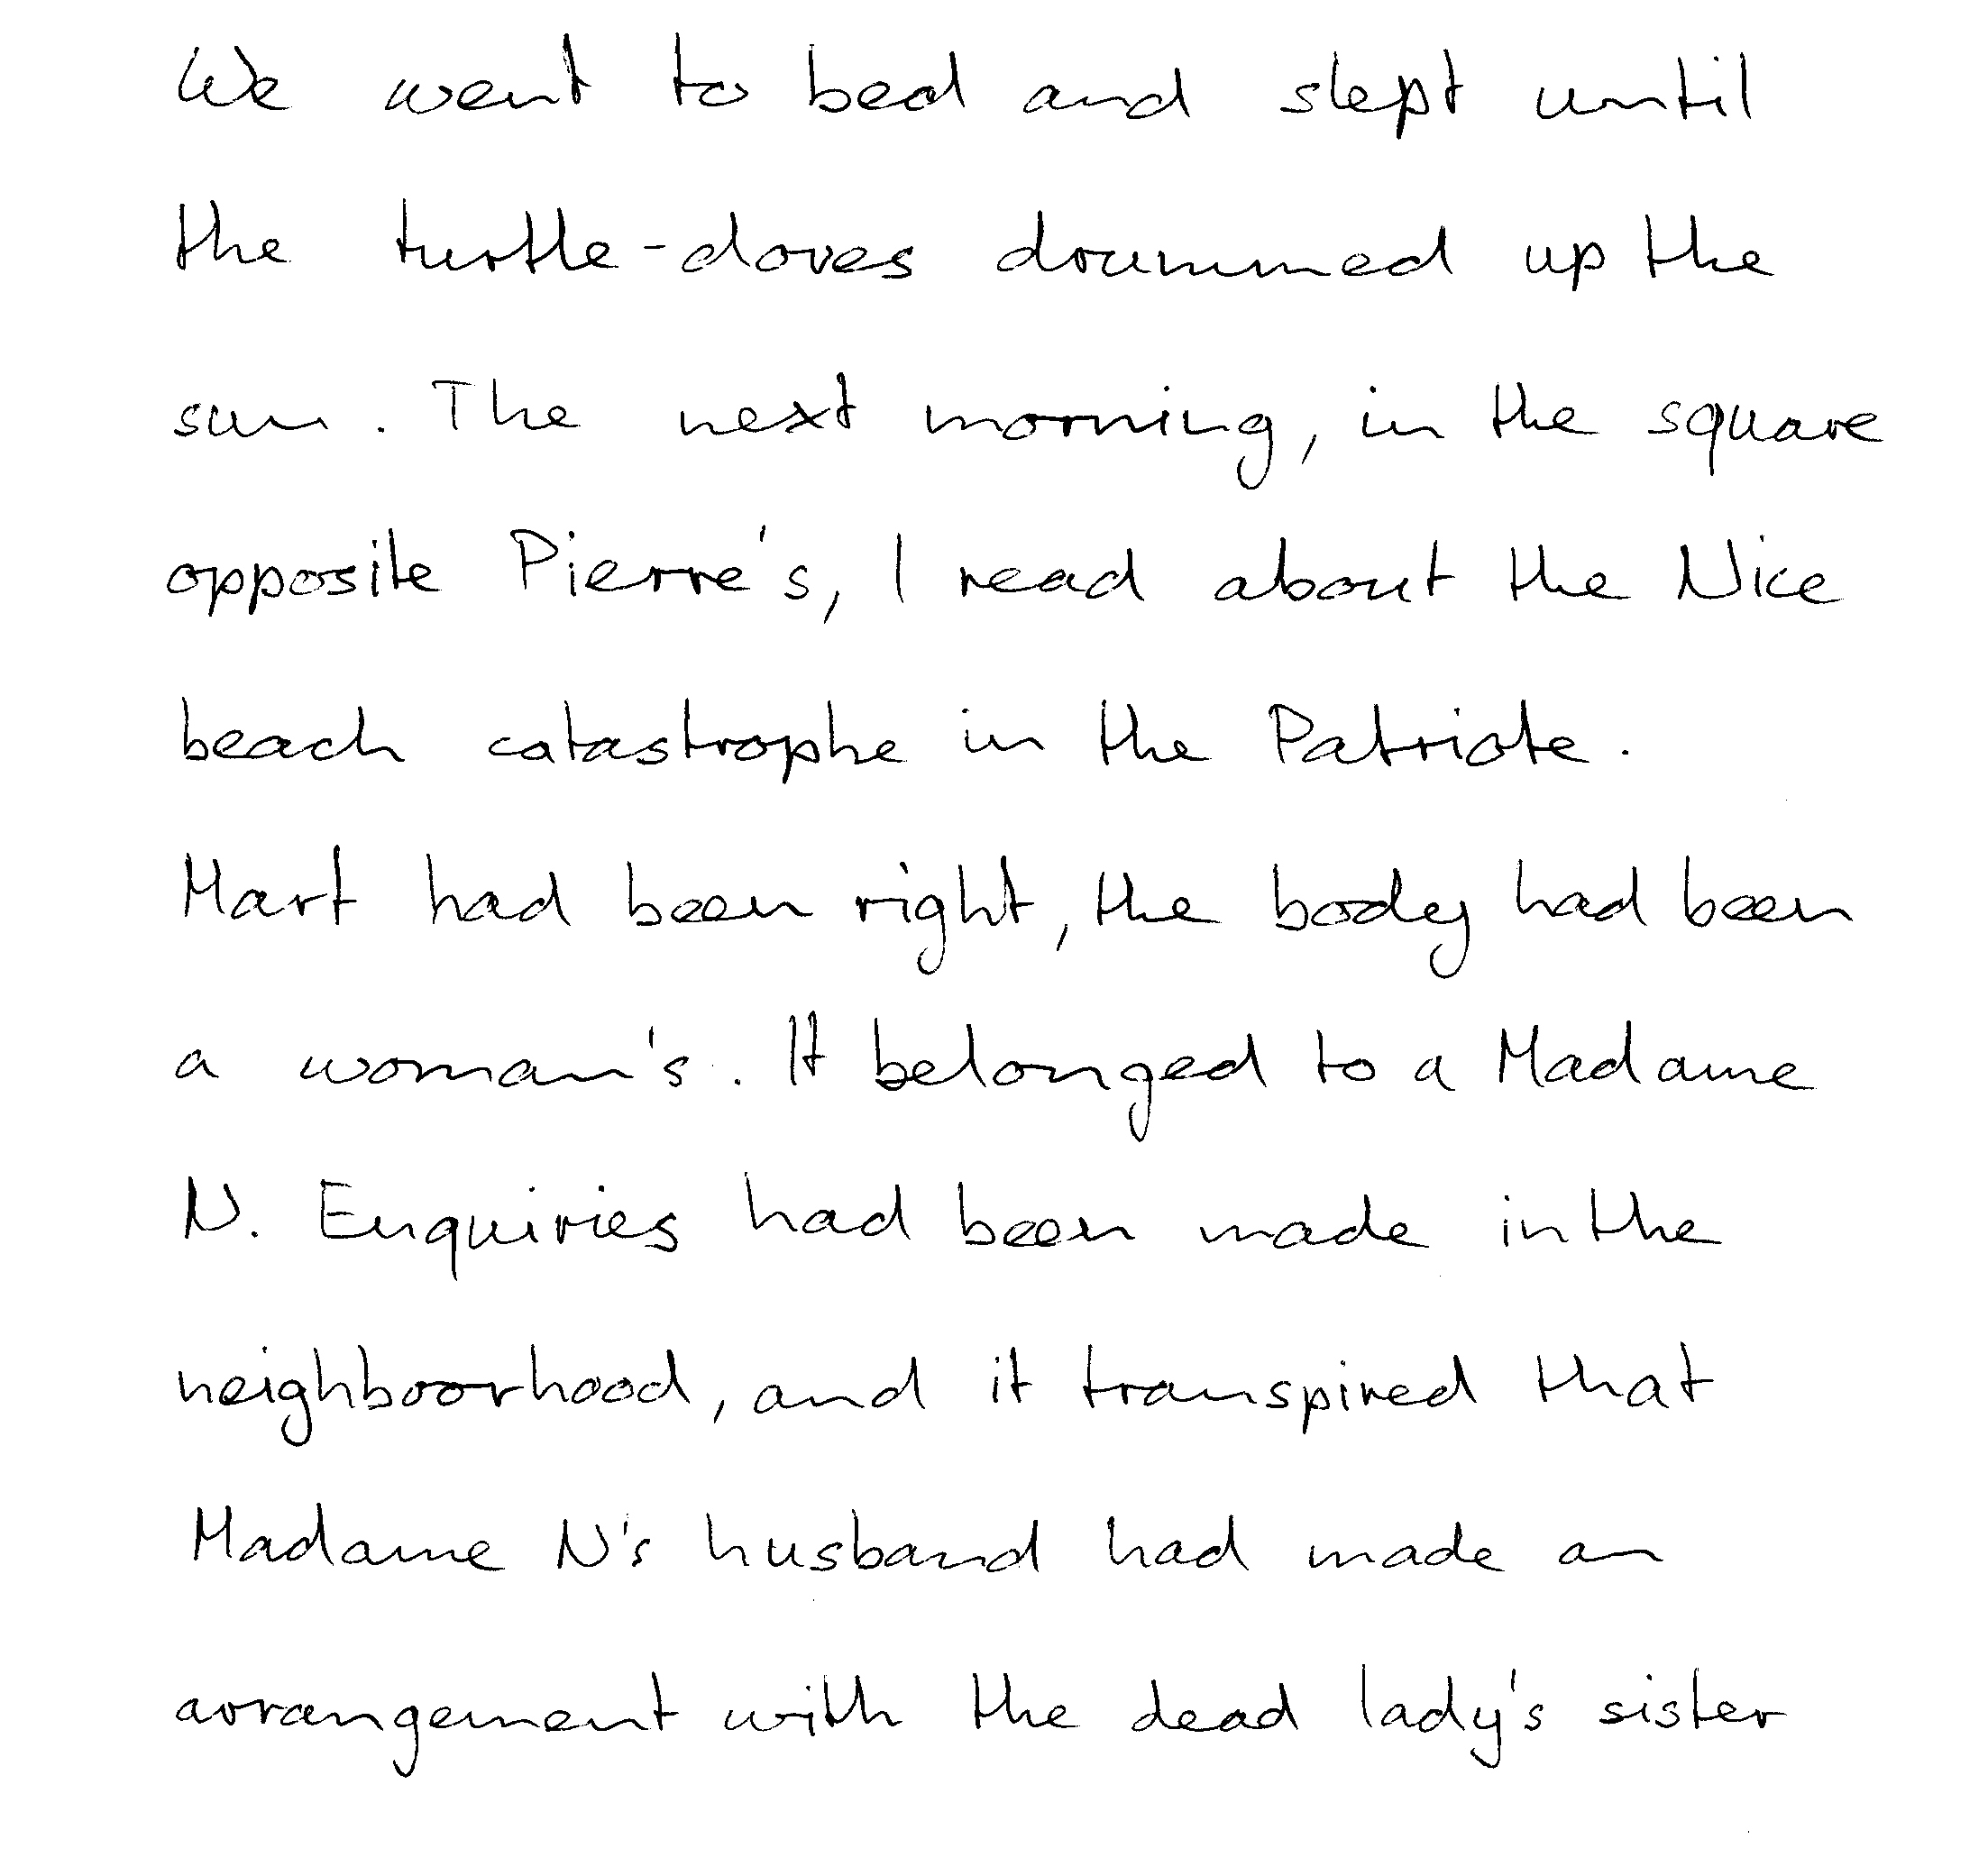 We went to bed and slept until
the turtle-doves drummed up the
sun. The next morning, in the square
opposite Pierre's, I read about the Nice
beach catastrophe in the Patriote.
Mart had been right, the body had been
a woman's. It belonged to a Madame
N. Enquiries had been made in the
neighboorhood, and it transpired that
Madame N's husband had made an
arrangement with the dead lady's sister